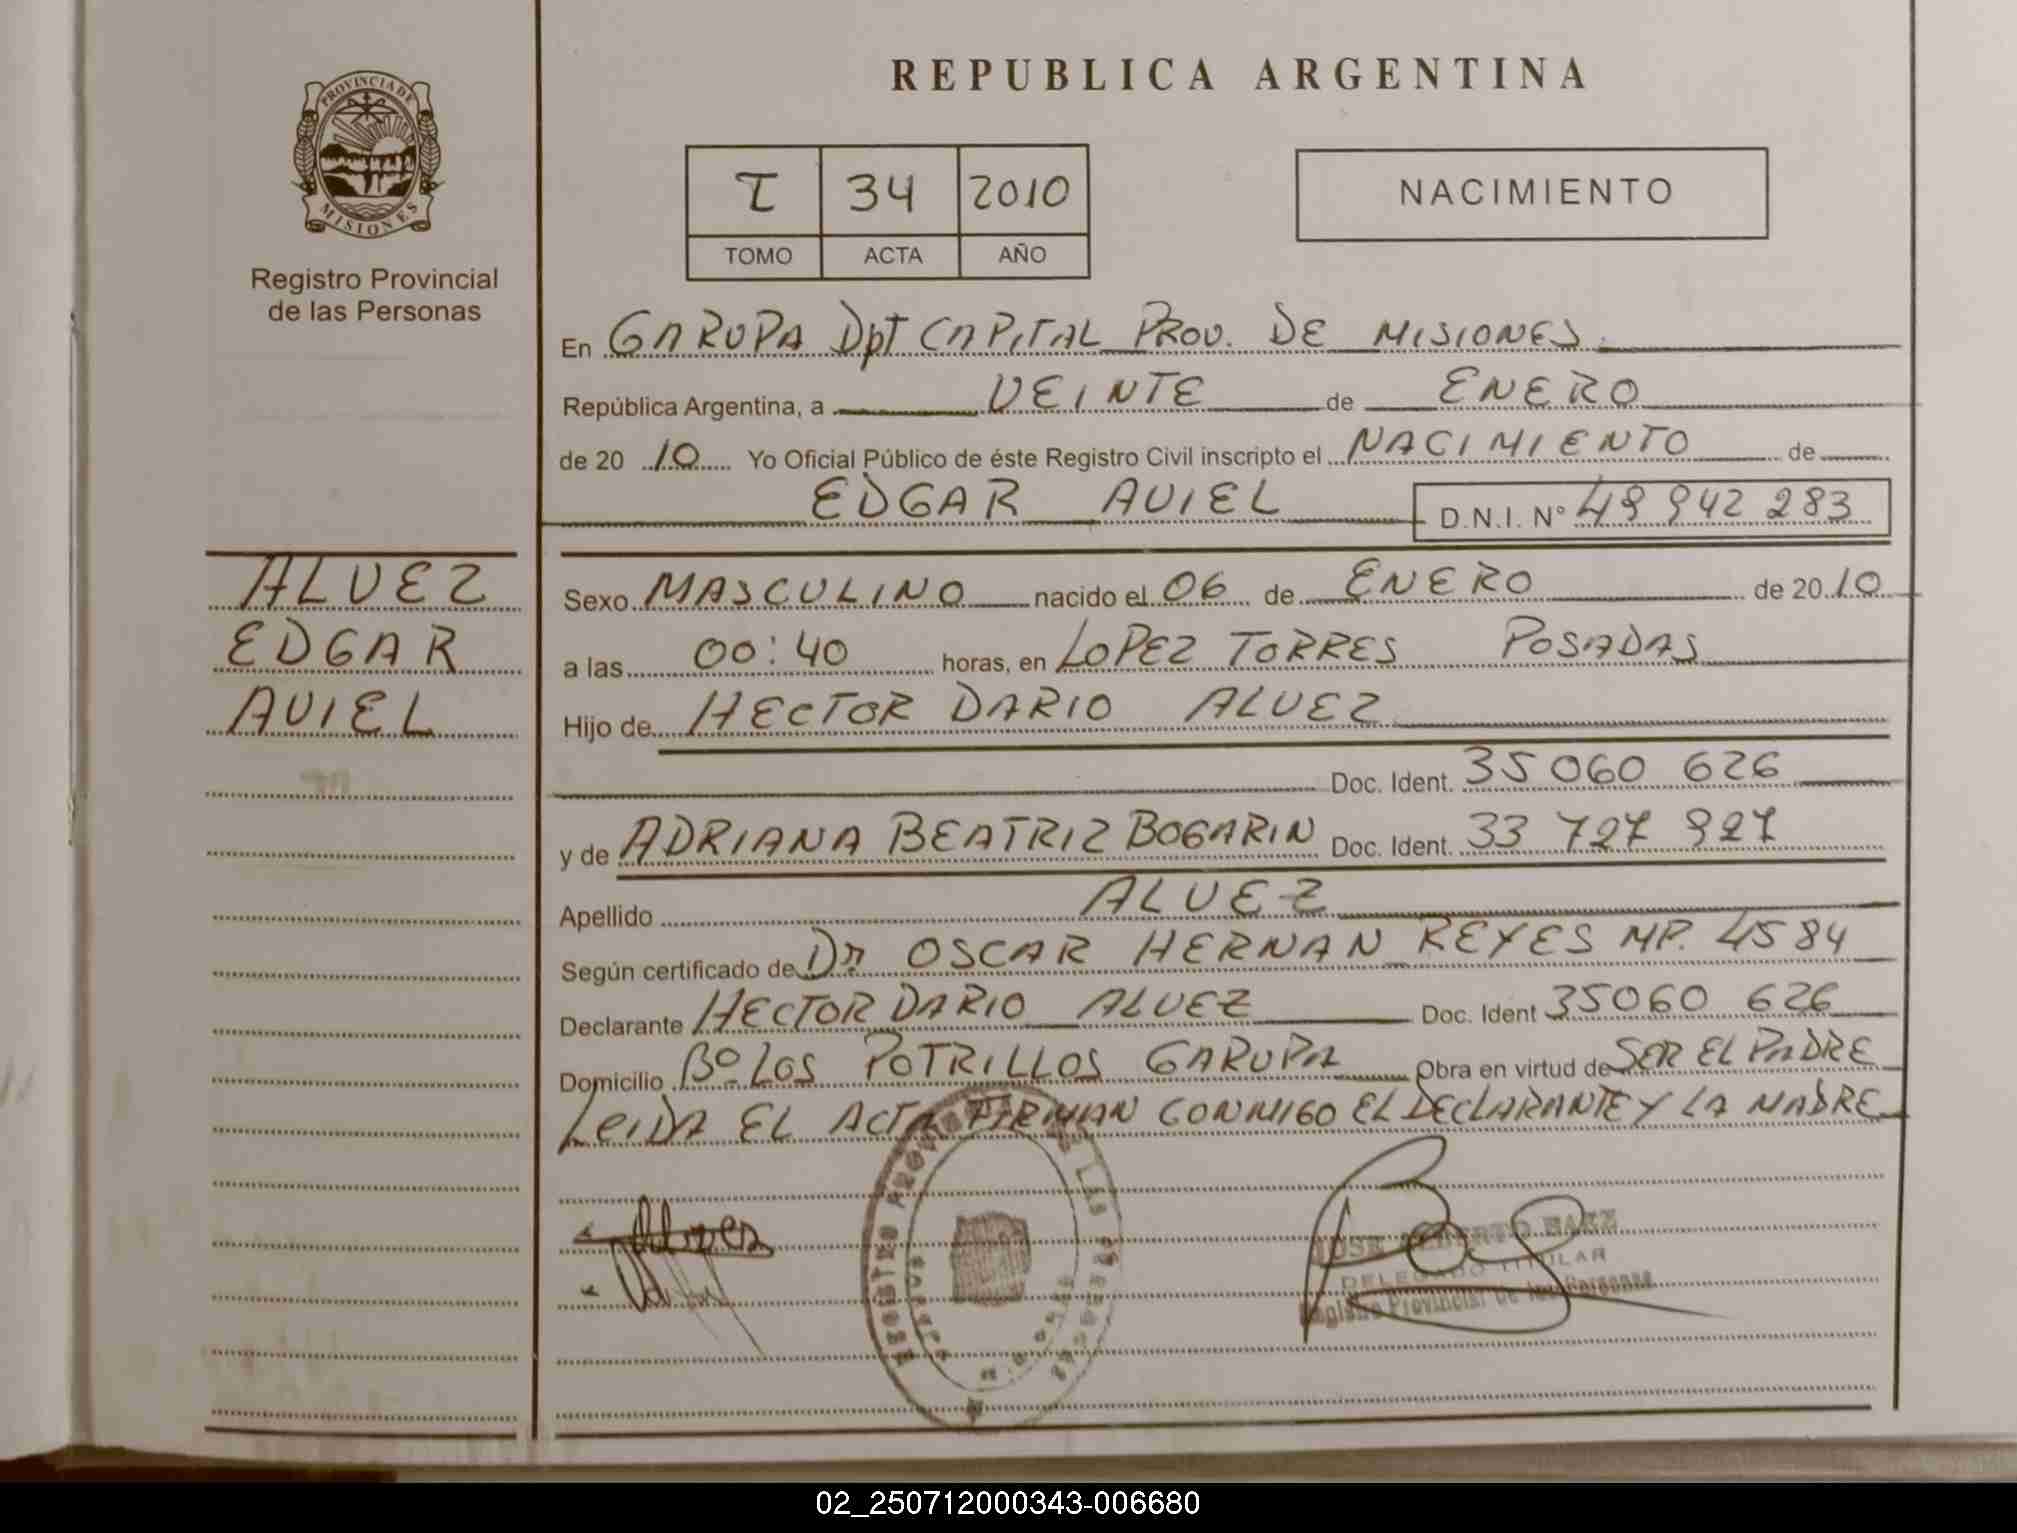 PROVINCIA DE
MISIONES
Registro Provincial
de las Personas
REPUBLICA ARGENTINA
I 34 2010
TOMO ACTA AÑO
NACIMIENTO
En GARUPA Dpt CAPITAL PROV. DE MISIONES.
República Argentina, a VEINTE de ENERO
de 20 10 Yo Oficial Público de éste Registro Civil inscripto el NACIMIENTO de
EDGAR AVIEL D.N.I. N° 49 942 283
ALVEZ
EDGAR
AVIEL
Sexo MASCULINO nacido el 06 de ENERO de 20 10
a las 00:40 horas, en LOPEZ TORRES POSADAS
Hijo de HECTOR DARIO ALVEZ
Doc. Ident. 35 060 626
y de ADRIANA BEATRIZ BOGARIN Doc. Ident. 33 727 927
Apellido ALVEZ
Según certificado de Dr OSCAR HERNAN REYES MP. 4584
Declarante HECTOR DARIO ALVEZ Doc. Ident 35060 626
Domicilio Bº LOS POTRILLOS GARUPA Obra en virtud de SER EL PADRE
LEIDA EL ACTA FIRMAN CONMIGO EL DECLARANTE Y LA MADRE
REGISTRO PROVINCIAL DE LAS PERSONAS
JOSE ALBERTO BAEZ
DELEGADO TITULAR
Registro Provincial de las Personas
02_250712000343-006680